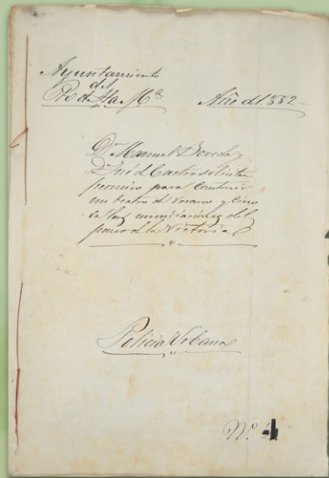 Ayuntamiento
del
Pto de Sta Mª Año de 1882
Dn Manuel y
Dn José de Castro solicitan
permiso para construir
un teatro de verano y circo
en las inmediaciones del
paseo de la Victoria
Policia Urbana
Nº 4